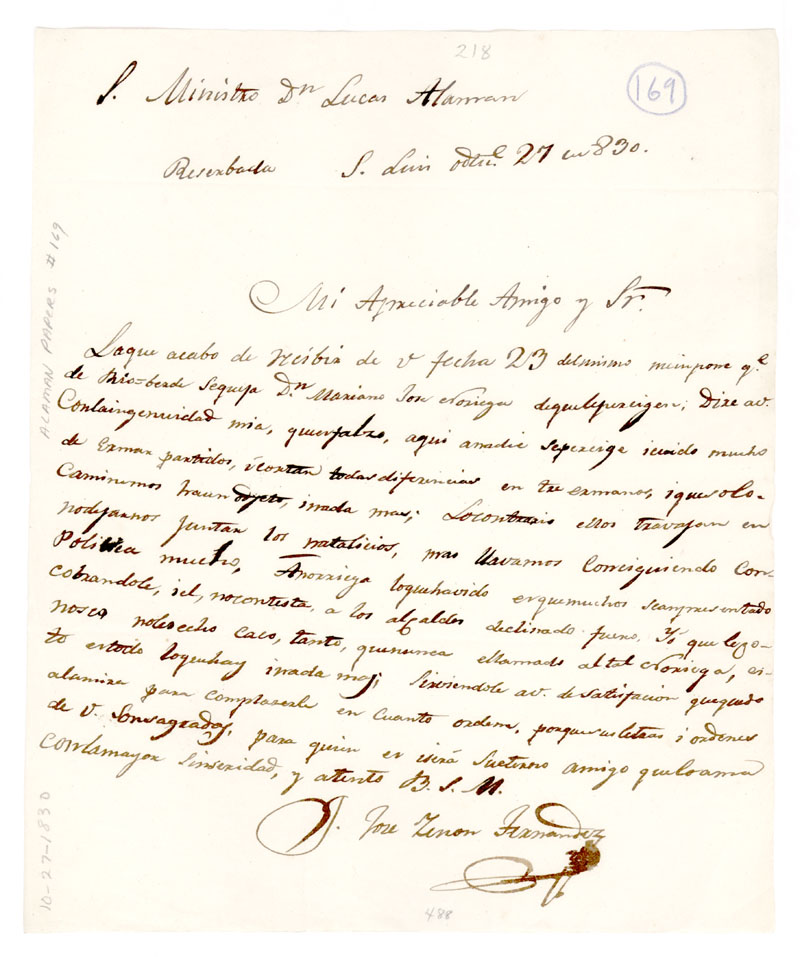 218
169
S. Ministro Dn Lucas Alaman
Reserbada S. Luis obtre. 27 en 830.
Mi Apreciable Amigo y Sr.
Laque acabo de resibir de v fecha 23 delmismo meimpone q.e
de Rio-berde Sequeja Dn. Mariano Jose Noriega dequelepercigen; Dire av.
Containgenuidad mia, quees falzo, aqui anadie sepercige icuido mucho
de Ermar partidos, icortan todas diferincias en tre ermanos, iquesolo
Caminemos haun ojeto, inada mas; Locontrario ellos travajan en
nodejarnos juntar los natalicios, mas llavamos Consiguiendo Con
Politica mucho, Anorriega loquehavido esquemuchos seanpresentado
cobrandole, iel, nocontesta, a los alcaldes declinado fuero, Yo que lego-
nosco noleecho Caco, tanto, quenunca ellamado altal Noriega, es-
to estodo loquehay inada mas; Sirviendole av. desatifacion quequedo
alamira para complaserle en Cuanto ordene, porquesusletras i ordenes
de V. Sonsagradas, para quien es iserá suetterno amigo queloama
Conlamayor Sinseridad, y atento B. S. M.
Jose Zenon Fernandez
488
ALAMAN PAPERS #169
10-27-1830